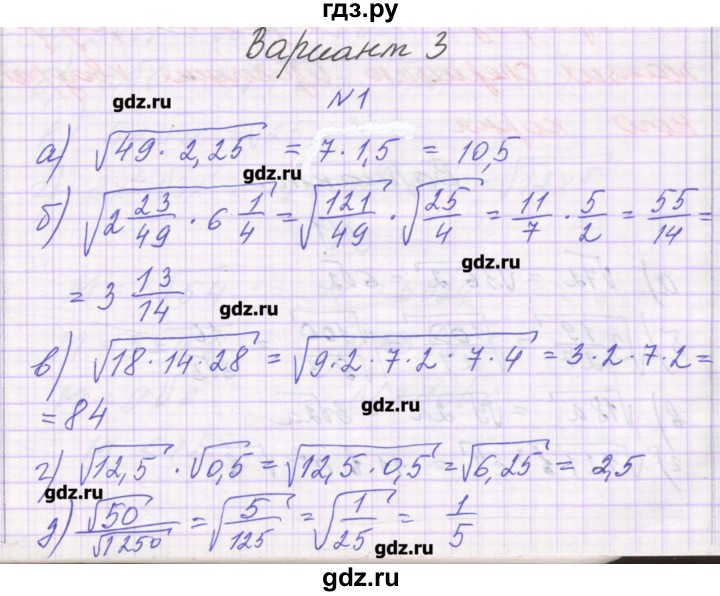 гдз.ру
Вариант 3
gdz.ru
№1
а) √(49 · 2,25) = 7 · 1,5 = 10,5
gdz.ru
б) √(2 23/49 · 6 1/4) = √(121/49) · √(25/4) = 11/7 · 5/2 = 55/14 =
gdz.ru
= 3 13/14
gdz.ru
в) √(18 · 14 · 28) = √(9 · 2 · 7 · 2 · 7 · 4) = 3 · 2 · 7 · 2 =
= 84
gdz.ru
г) √12,5 · √0,5 = √(12,5 · 0,5) = √6,25 = 2,5
gdz.ru
д) √50/√1250 = √(5/125) = √(1/25) = 1/5
gdz.ru
gdz.ru